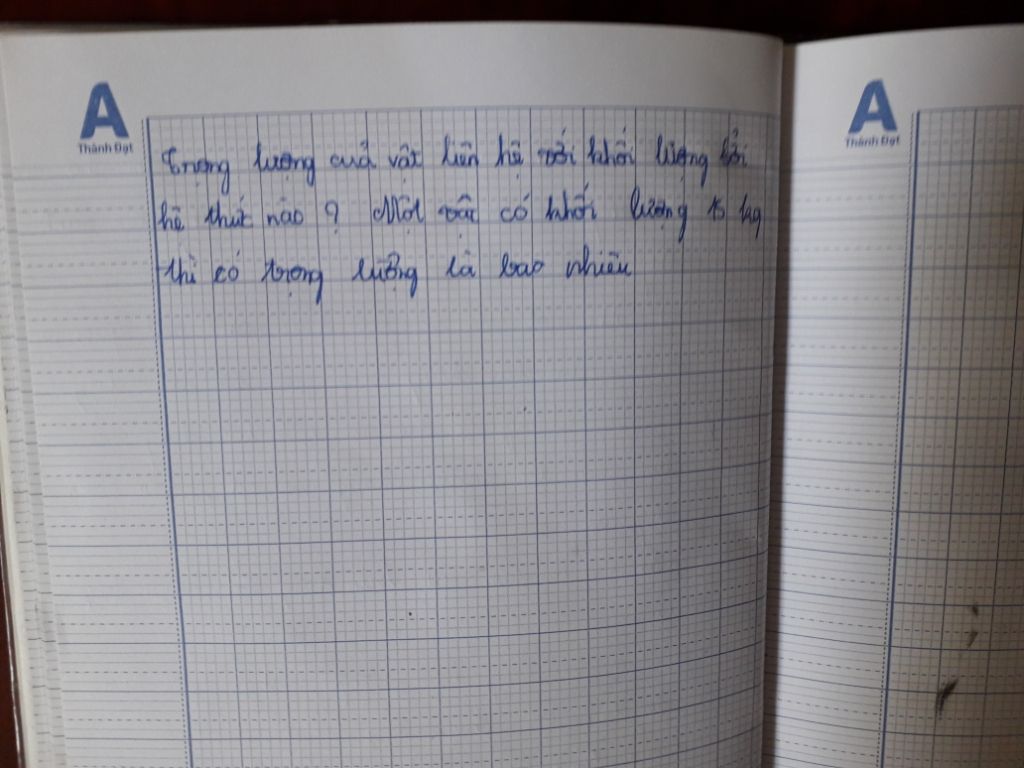 A
Thành Đạt
A
Thành Đạt
Trọng lượng cuả vật liên hệ với khối lượng bởi
hệ thức nào ? Một vật có khối lượng 15 kg
thì có trọng lưỡng là bao nhiêu